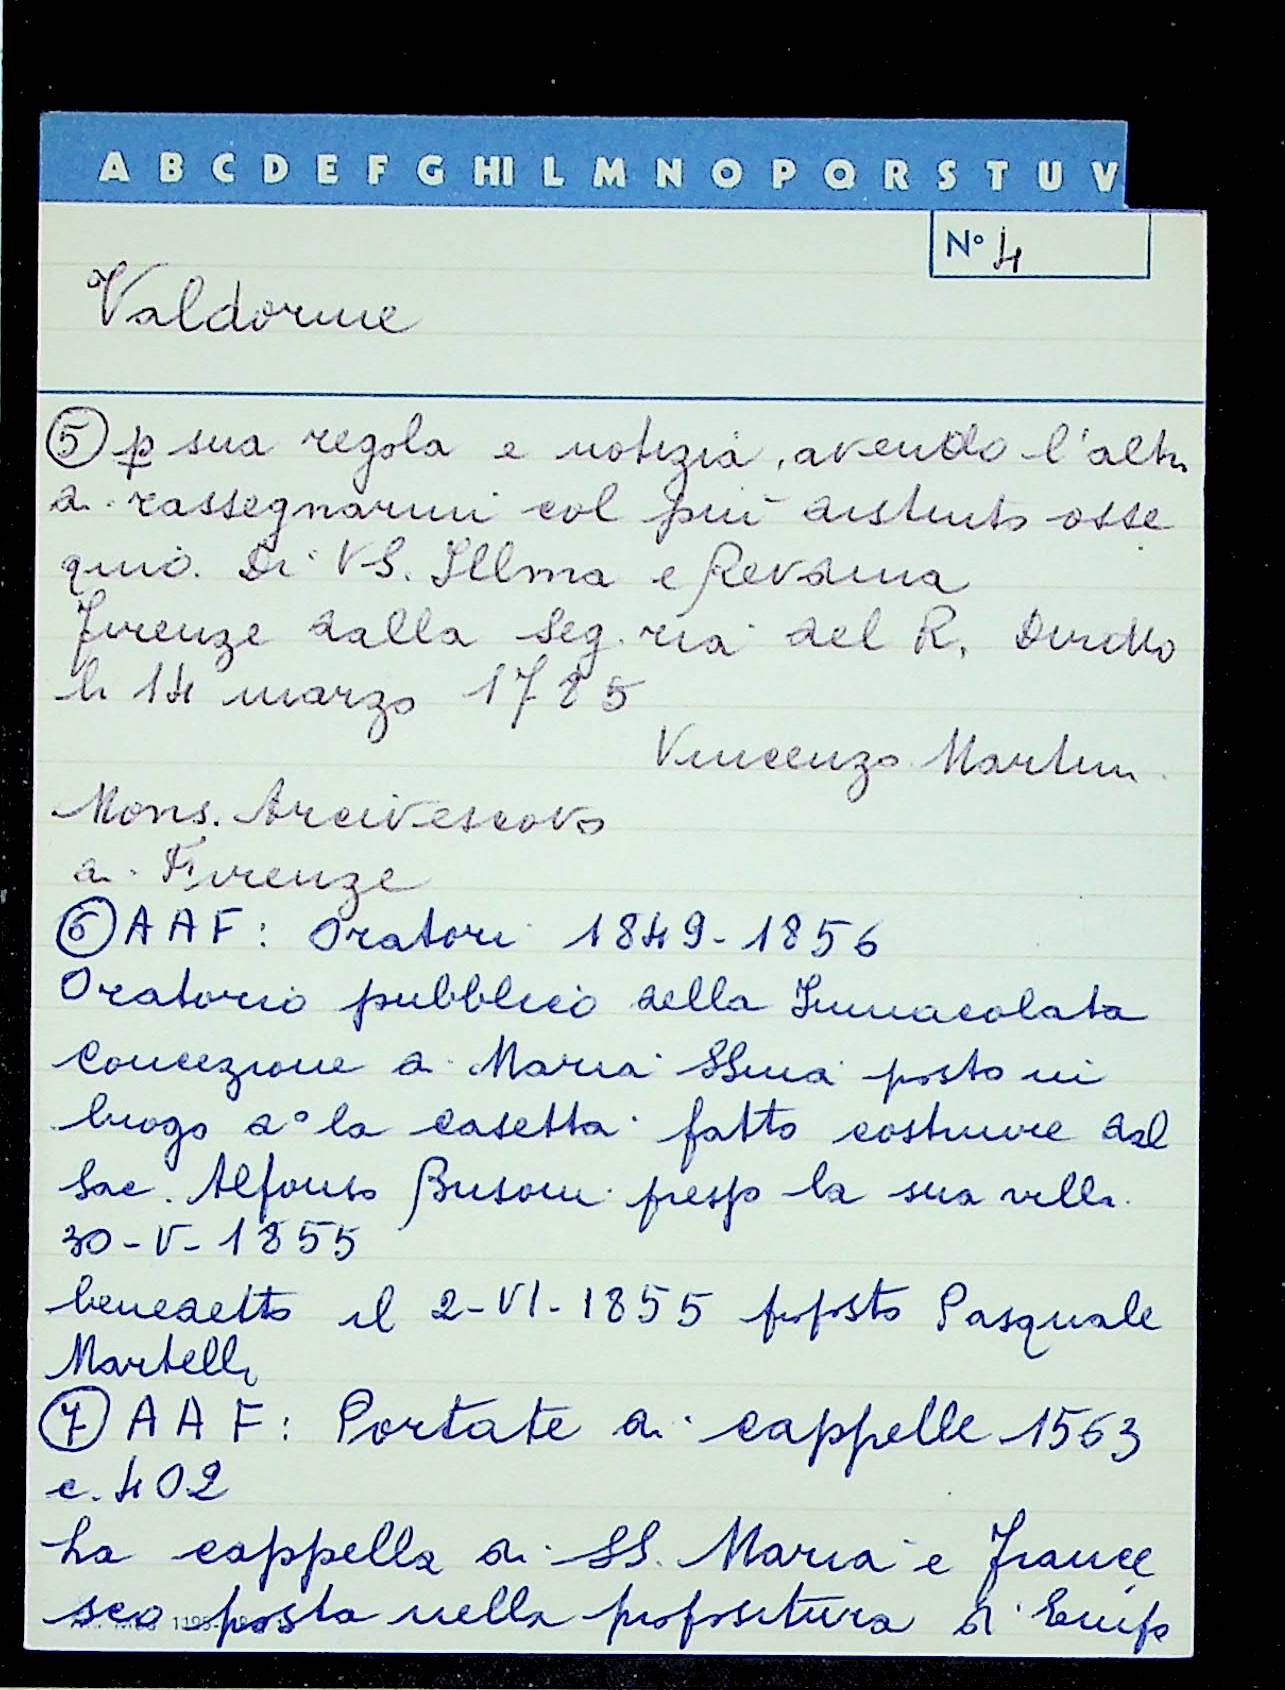 A B C D E F G HI L M N O P Q R S T U V
N° 4
Valdorme
⑤ p sua regola e notizia, avendo l'altr
a rassegnarmi col più distinto osse
quio. Di VS. Illma e Revdma
Firenze dalla Seg.ria del R. Diritto
li 14 marzo 1785
Vincenzo Martini
Mons. Arcivescovo
di Firenze
⑥ AAF: Oratori 1849-1856
Oratorio pubblico della Immacolata
Concezione di Maria SSma posto in
luogo d° la casetta fatto costruire dal
Sac. Alfonso Busoni presso la sua villa.
30-V-1855
benedetto il 2-VI-1855 proposto Pasquale
Martelli
⑦ AAF: Portate di cappelle 1563
c. 402
La cappella di SS. Maria e France
sco posta nella propositura d'Empo